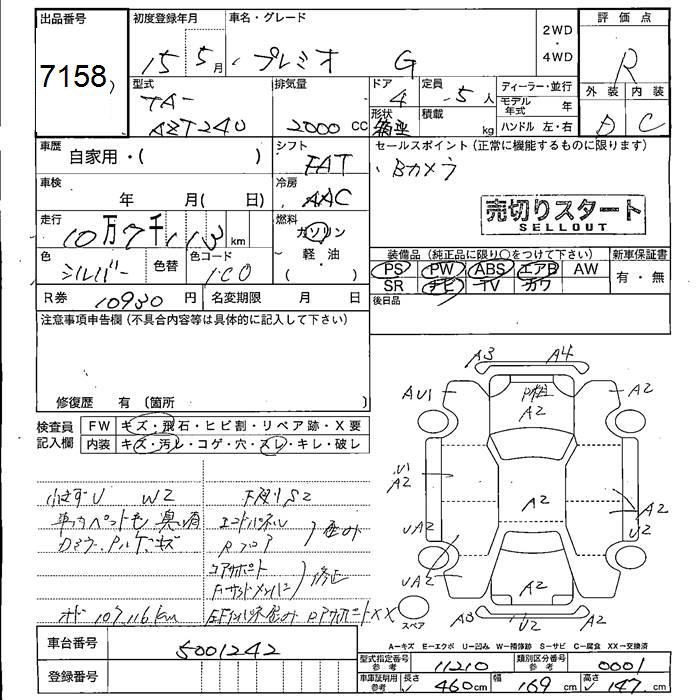 出品番号
7158
初度登録年月
15 5月
車名・グレード
プレミオ G
2WD
・
4WD
評価点
R
外装 内装
D C
型式
TA-
AZT240
排気量
2000 CC
ドア
4
形状
箱型
定員
5人
積載
kg
ディーラー・並行
モデル年式 年
ハンドル 左・右
車歴
自家用・( )
シフト
FAT
セールスポイント(正常に機能するものに限ります)
・Bカメラ
車検
年 月( 日)
冷房
AAC
売切りスタート
SELLOUT
走行
10万7千113km
燃料
ガソリン
軽・油
( )
色
シルバー
色替
色コード
1C0
装備品(純正品に限り○をつけて下さい)
PS PW ABS エアB AW
SR ナビ TV カワ
新車保証書
有・無
後日品
R券 10930円
名変期限 月 日
注意事項申告欄(不具合内容等は具体的に記入して下さい)
修復歴 有(箇所 )
検査員記入欄
FW キズ・飛石・ヒビ割・リペア跡・X要
内装 キズ・汚レ・コゲ・穴・スレ・キレ・破レ
小キズU W2
下廻りS2
車内ペット毛 臭い有
エンドパネル
Rフロア
コアサポート
修正
オド 107,116km
XX
A3 A4
AU1 A2 A2
U1
A2
A2 A2
U2
UA2
UA2
A2
A3 U2 A2
スペア
A=キズ E=エクボ U=凹み W=補修跡 S=サビ C=腐食 XX=交換済
車台番号
5001242
登録番号
型式指定番号 参考
11210
類別区分番号 参考
0001
車庫証明用 参考
長さ 460cm
幅 169cm
高さ 147cm